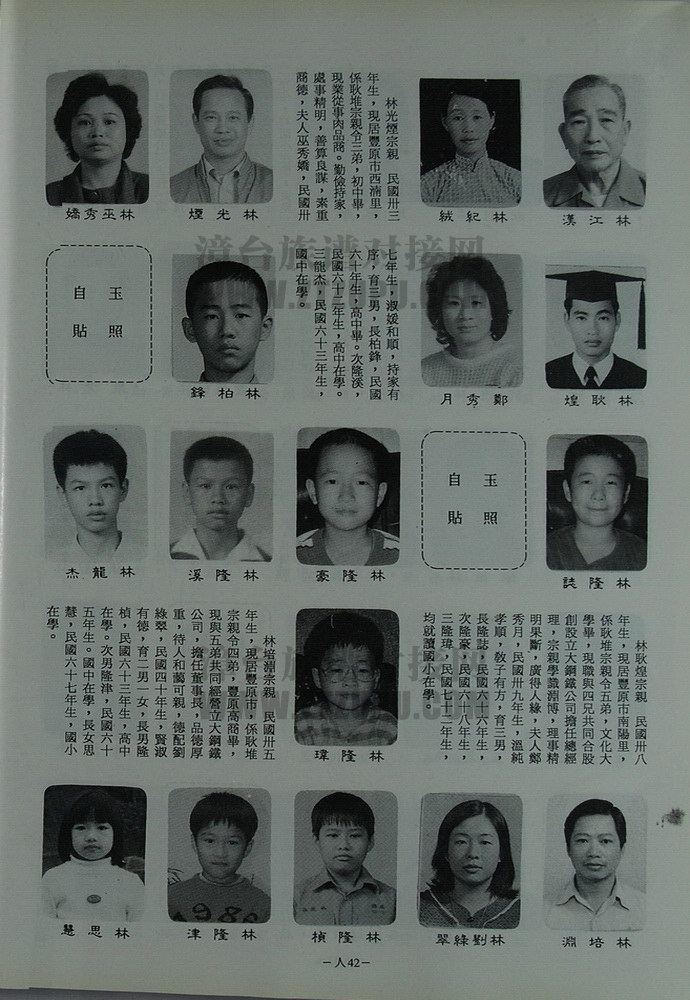 林江漢
林紀絨
林光煙宗親　民國卅三
年生，現居豐原市西湳里，
係耿堆宗親令三弟，初中畢，
現業從事肉品商。勤儉持家，
處事精明，善算良謀，素重
商德，夫人巫秀嬌，民國卅
林光煙
林巫秀嬌
漳台族谱对接网
林耿煌
鄭秀月
七年生，淑媛和順，持家有
序，育三男，長柏鋒，民國
六十年生，高中畢。次隆溪，
民國六十二年生，高中在學。
三龍杰，民國六十三年生，
國中在學。
林柏鋒
玉照
自貼
林隆誌
玉照
自貼
林隆豪
林隆溪
林龍杰
林耿煌宗親　民國卅八
年生，現居豐原市南陽里，
係耿堆宗親令五弟，文化大
學畢，現職與四兄共同合股
創設立大鋼鐵公司擔任總經
理，宗親學識淵博，理事精
明果斷，廣得人緣，夫人鄭
秀月，民國卅九年生，溫純
孝順，敎子有方，育三男，
長隆誌，民國六十六年生，
次隆豪，民國六十八年生，
三隆瑋，民國七十二年生，
均就讀國小在學。
林隆瑋
林培淵宗親　民國卅五
年生，現居豐原市，係耿堆
宗親令四弟，豐原高商畢，
現與五弟共同經營立大鋼鐵
公司，擔任董事長，品德厚
重，待人和藹可親，德配劉
綠翠，民國四十年生，賢淑
有德，育二男一女，長男隆
楨，民國六十三年生，高中
在學。次男隆津，民國六十
五年生。國中在學，長女思
慧，民國六十七年生，國小
在學。
林培淵
林劉綠翠
林隆楨
林隆津
1986
林思慧
－人42－